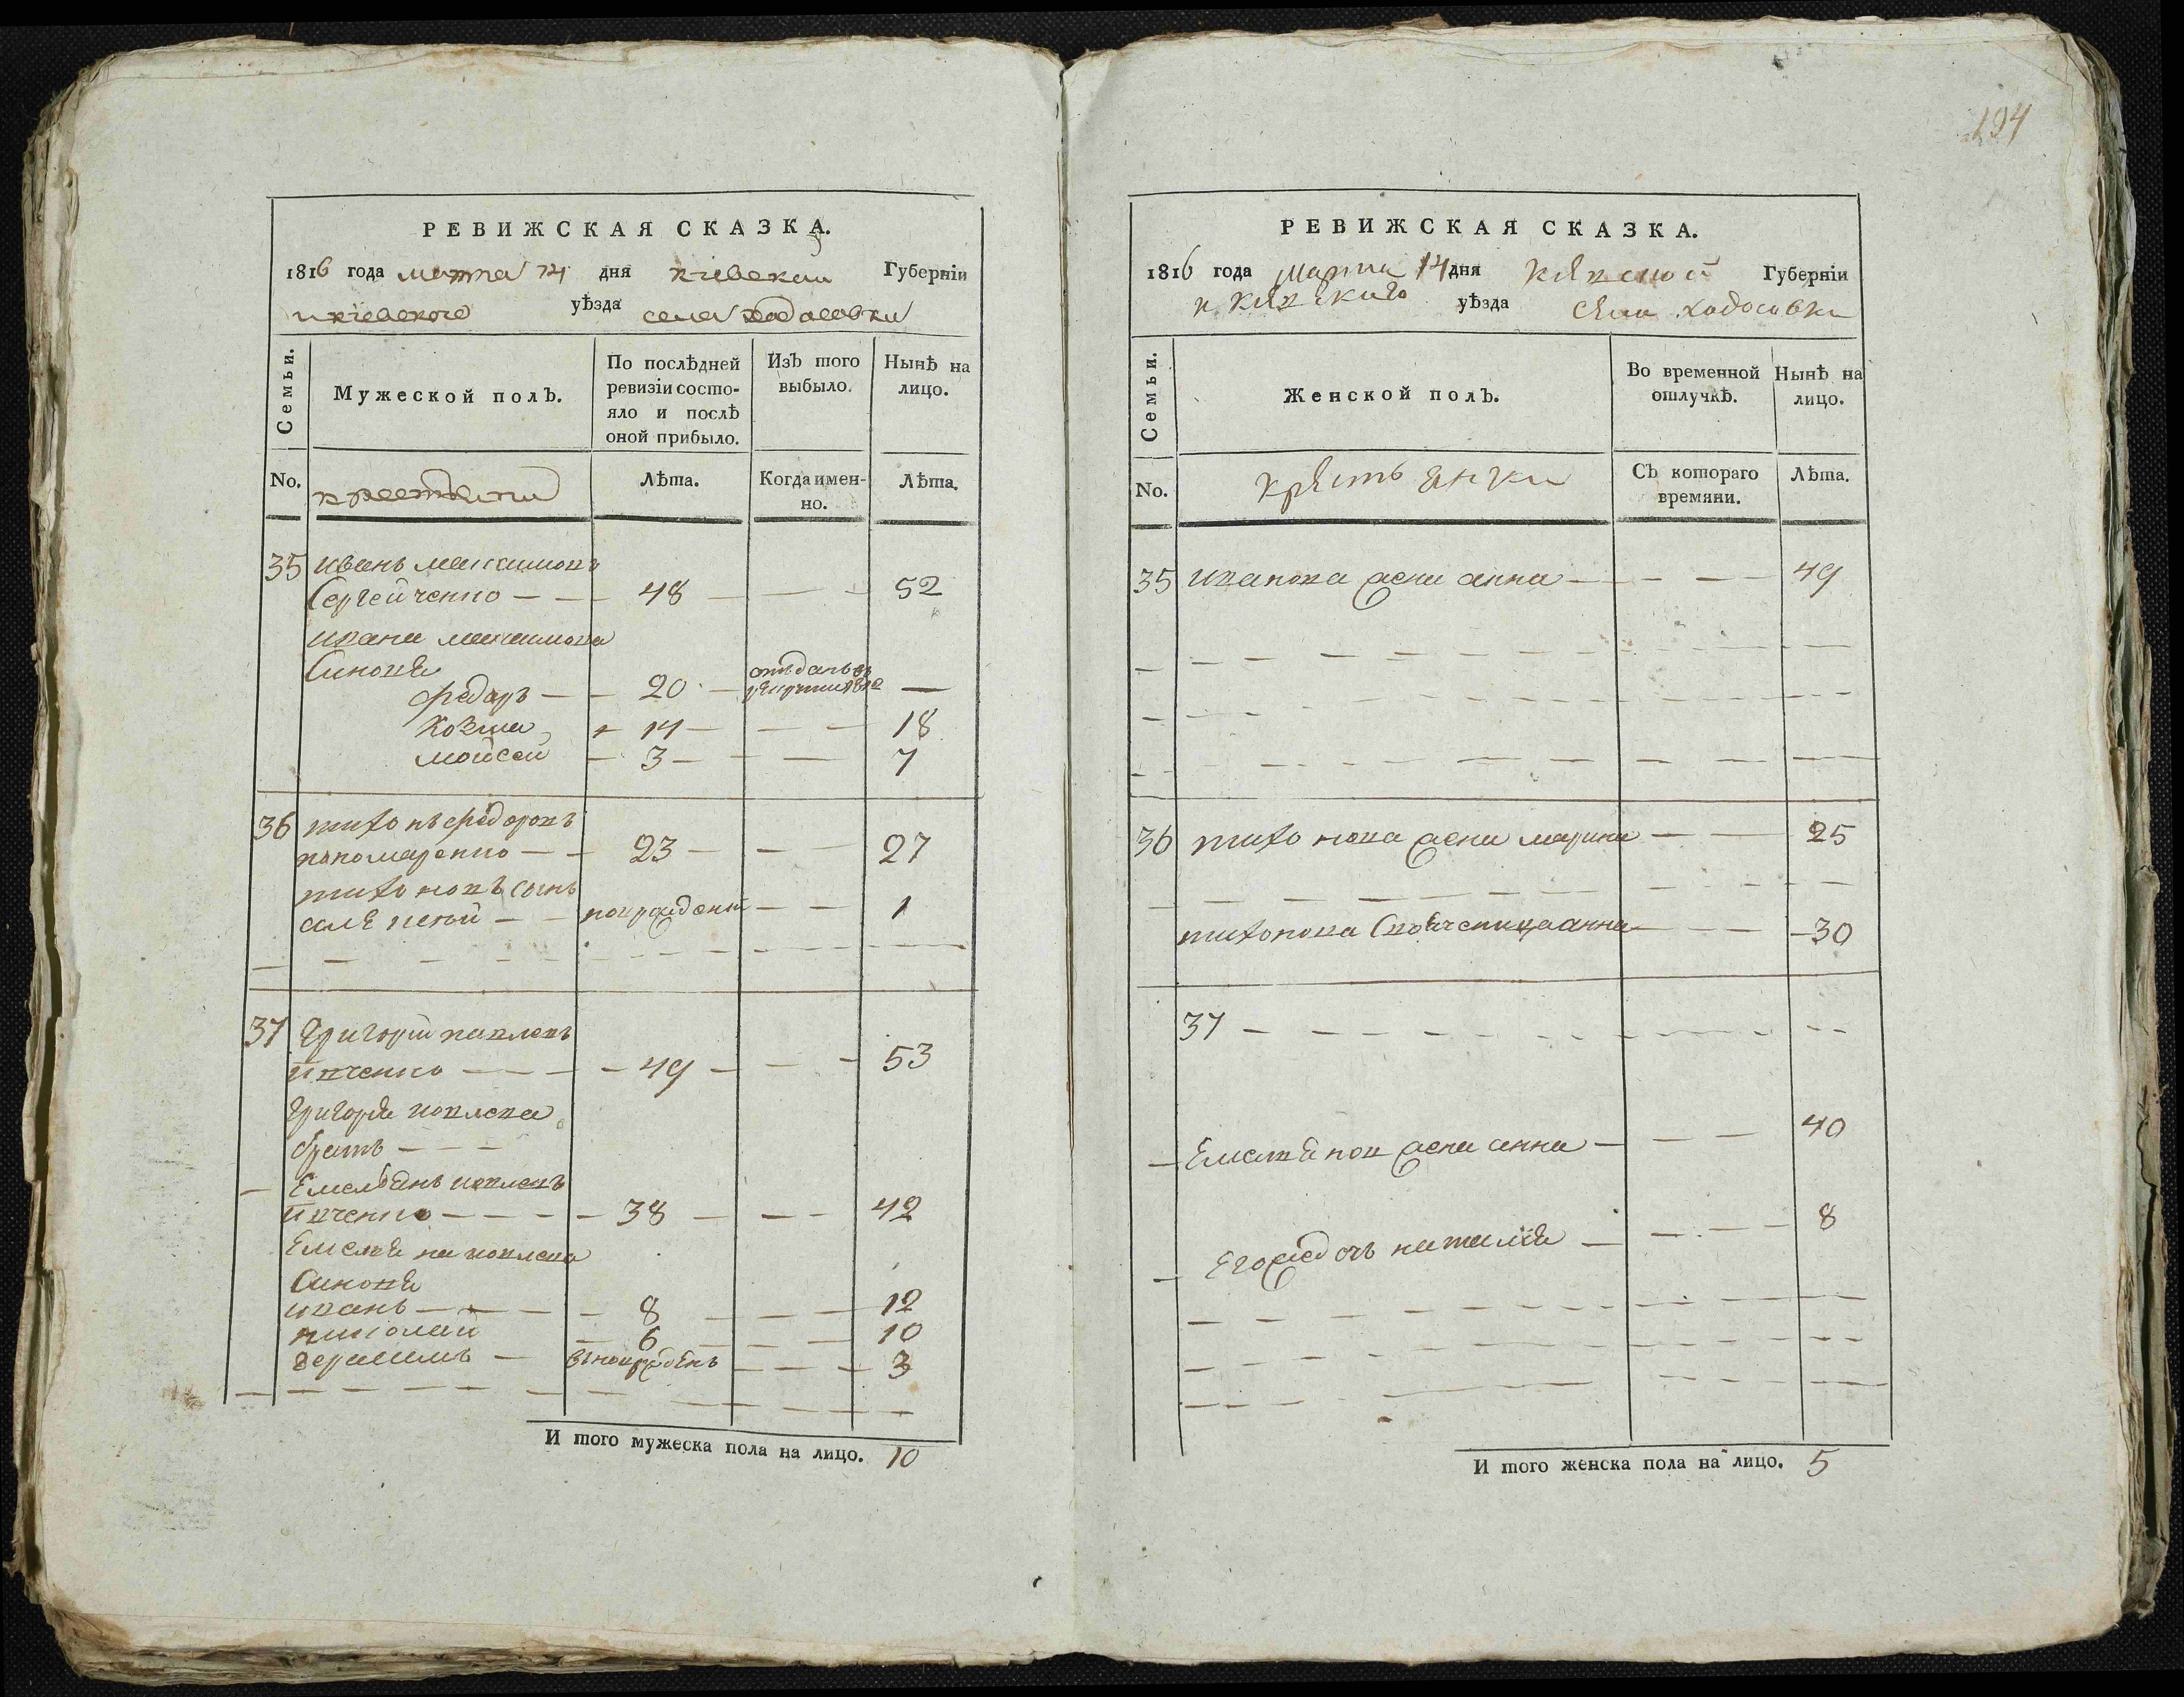 194
РЕВИЖСКАЯ СКАЗКА.
1816 года марта 14 дня киевской Губернїи
и киевского уѣзда села ходосовки
Семьи.
Мужеской полЪ.
По послѣдней ревизїи состояло и послѣ оной прибыло.
ИзЪ того выбыло.
Нынѣ на лицо.
No.
крестьяни
Лѣта.
Когда именно.
Лѣта.
35 иванъ максимовъ
Сергейченко — — 48 — — — 52
ивана максимова
Синовя
федоръ — — 20 — отъданъ въ рекрути — —
Козма — 14 — — — 18
мойсей — 3 — — — 7
36 тихонъ федоровъ
пономаренко — — 23 — — — 27
тихоновъ сынъ
алексей — — новрожденъ — — 1
37 Григорий павловъ
ивченко — — — — 49 — — — 53
Григоря павлова
братъ — — —
Емельянъ павловъ
ивченко — — — — 38 — — — 42
Емеляна павлова
Синовя
иванъ — — — — 8 — — — 12
николай — 6 — — 10
герасимъ — вновьрожденъ — — — 3
И того мужеска пола на лицо. 10
РЕВИЖСКАЯ СКАЗКА.
1816 года марта 14 дня киевской Губернїи
и киевского уѣзда села ходосовки
Семьи.
Женской полЪ.
Во временной отлучкѣ.
Нынѣ на лицо.
No.
крестьянки
СЪ котораго времяни.
Лѣта.
35 иванова жена анна — — — 49
36 тихонова жена марина — — 25
тихонова Своячениця анна — — — 30
37 — — — — — —
Емелянов жена анна — — — 40
Его дочь наталия — — — 8
И того женска пола на лицо. 5